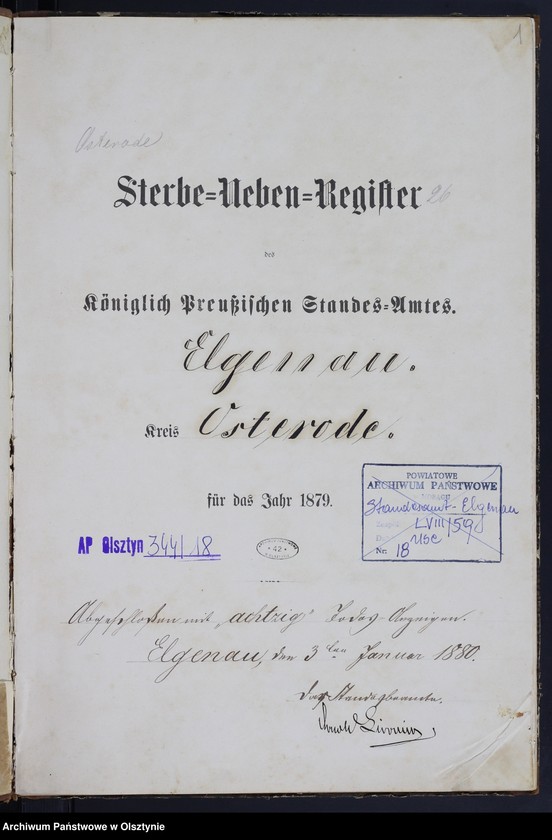 1
Osterode
Sterbe=Neben=Register 26
des
Königlich Preußischen Standes=Amtes.
Elgenau.
Kreis Osterode.
für das Jahr 1879.
POWIATOWE
ARCHIWUM PAŃSTWOWE
Standesamt - Elgenau
LVIII/59
USC
Nr. 18
AP Olsztyn 344/18
42
Abgeschlossen mit „achtzig" Todes-Anzeigen.
Elgenau, den 3ten Januar 1880.
Der Standesbeamte.
Archiwum Państwowe w Olsztynie